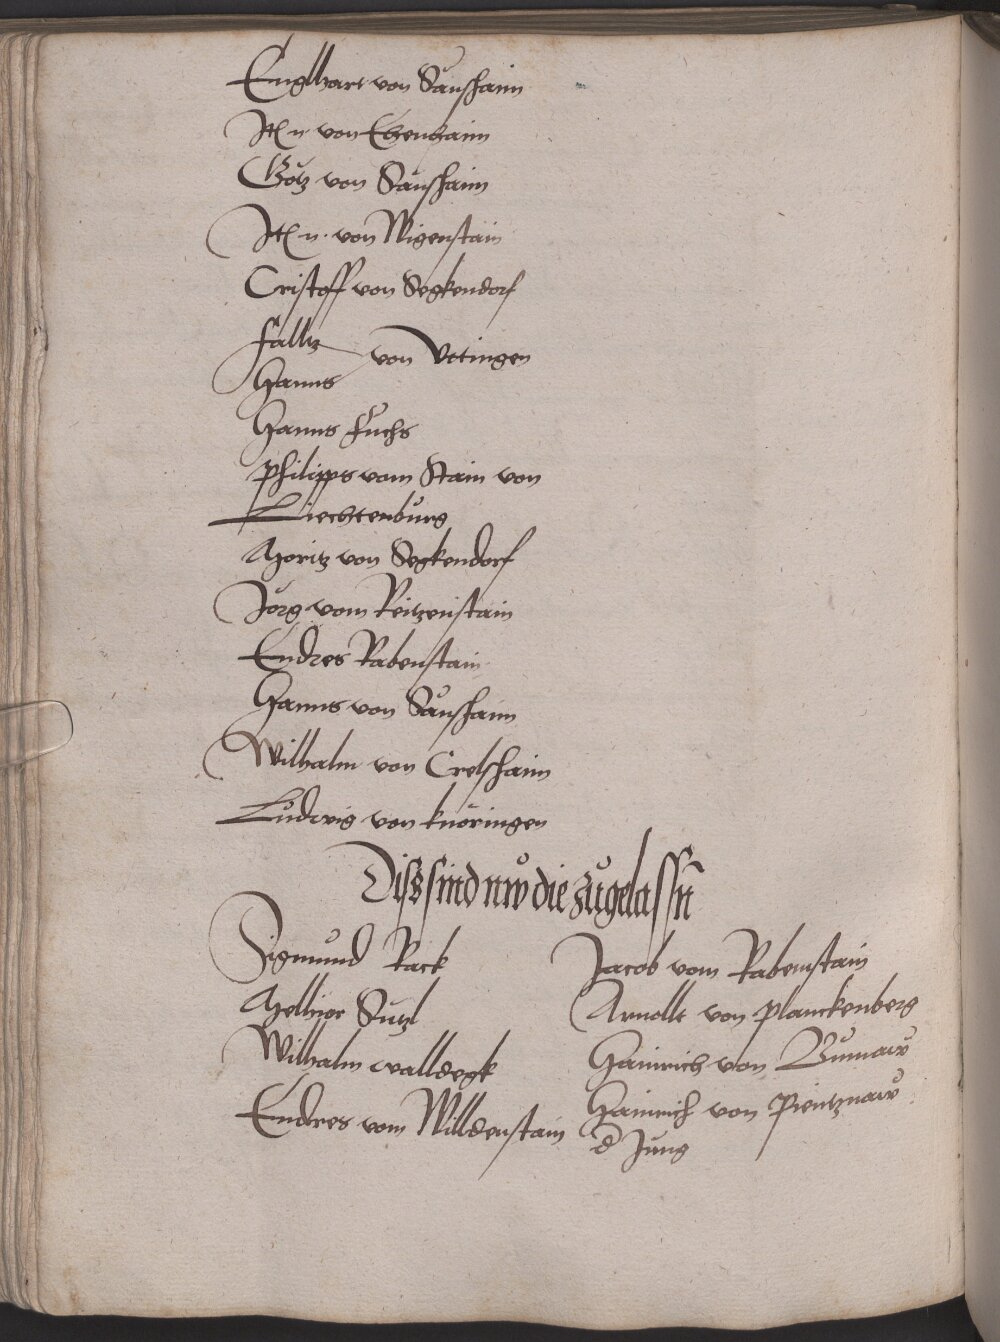 Englhart von Saunßhaim
Itl n. von Ebenhaim
Götz von Saunßhaim
Itl n. von Wigenstain
Cristoff von Segkendorf
Falltz
von Vttingen
Hanns
Hanns Fuchs
Philipps vom Stain von
Liechtenburg
Moritz von Segkendorf
Jörg vom Reitzenstain
Endres Rabenstain
Hanns von Saunßhaim
Wilhalm von Crelßhaim
Ludwig von Knöringen
Diss sind nw die zugelassn̄
Sigmund Rack
Melhior Sutzl
Wilhalm walldegk
Endres vom Willdenstain
Jacob vom Rabenstain
Arnollt von Planckenberg
Hainrich von Bumaw
Hainrich von Pientznaw
d Jung